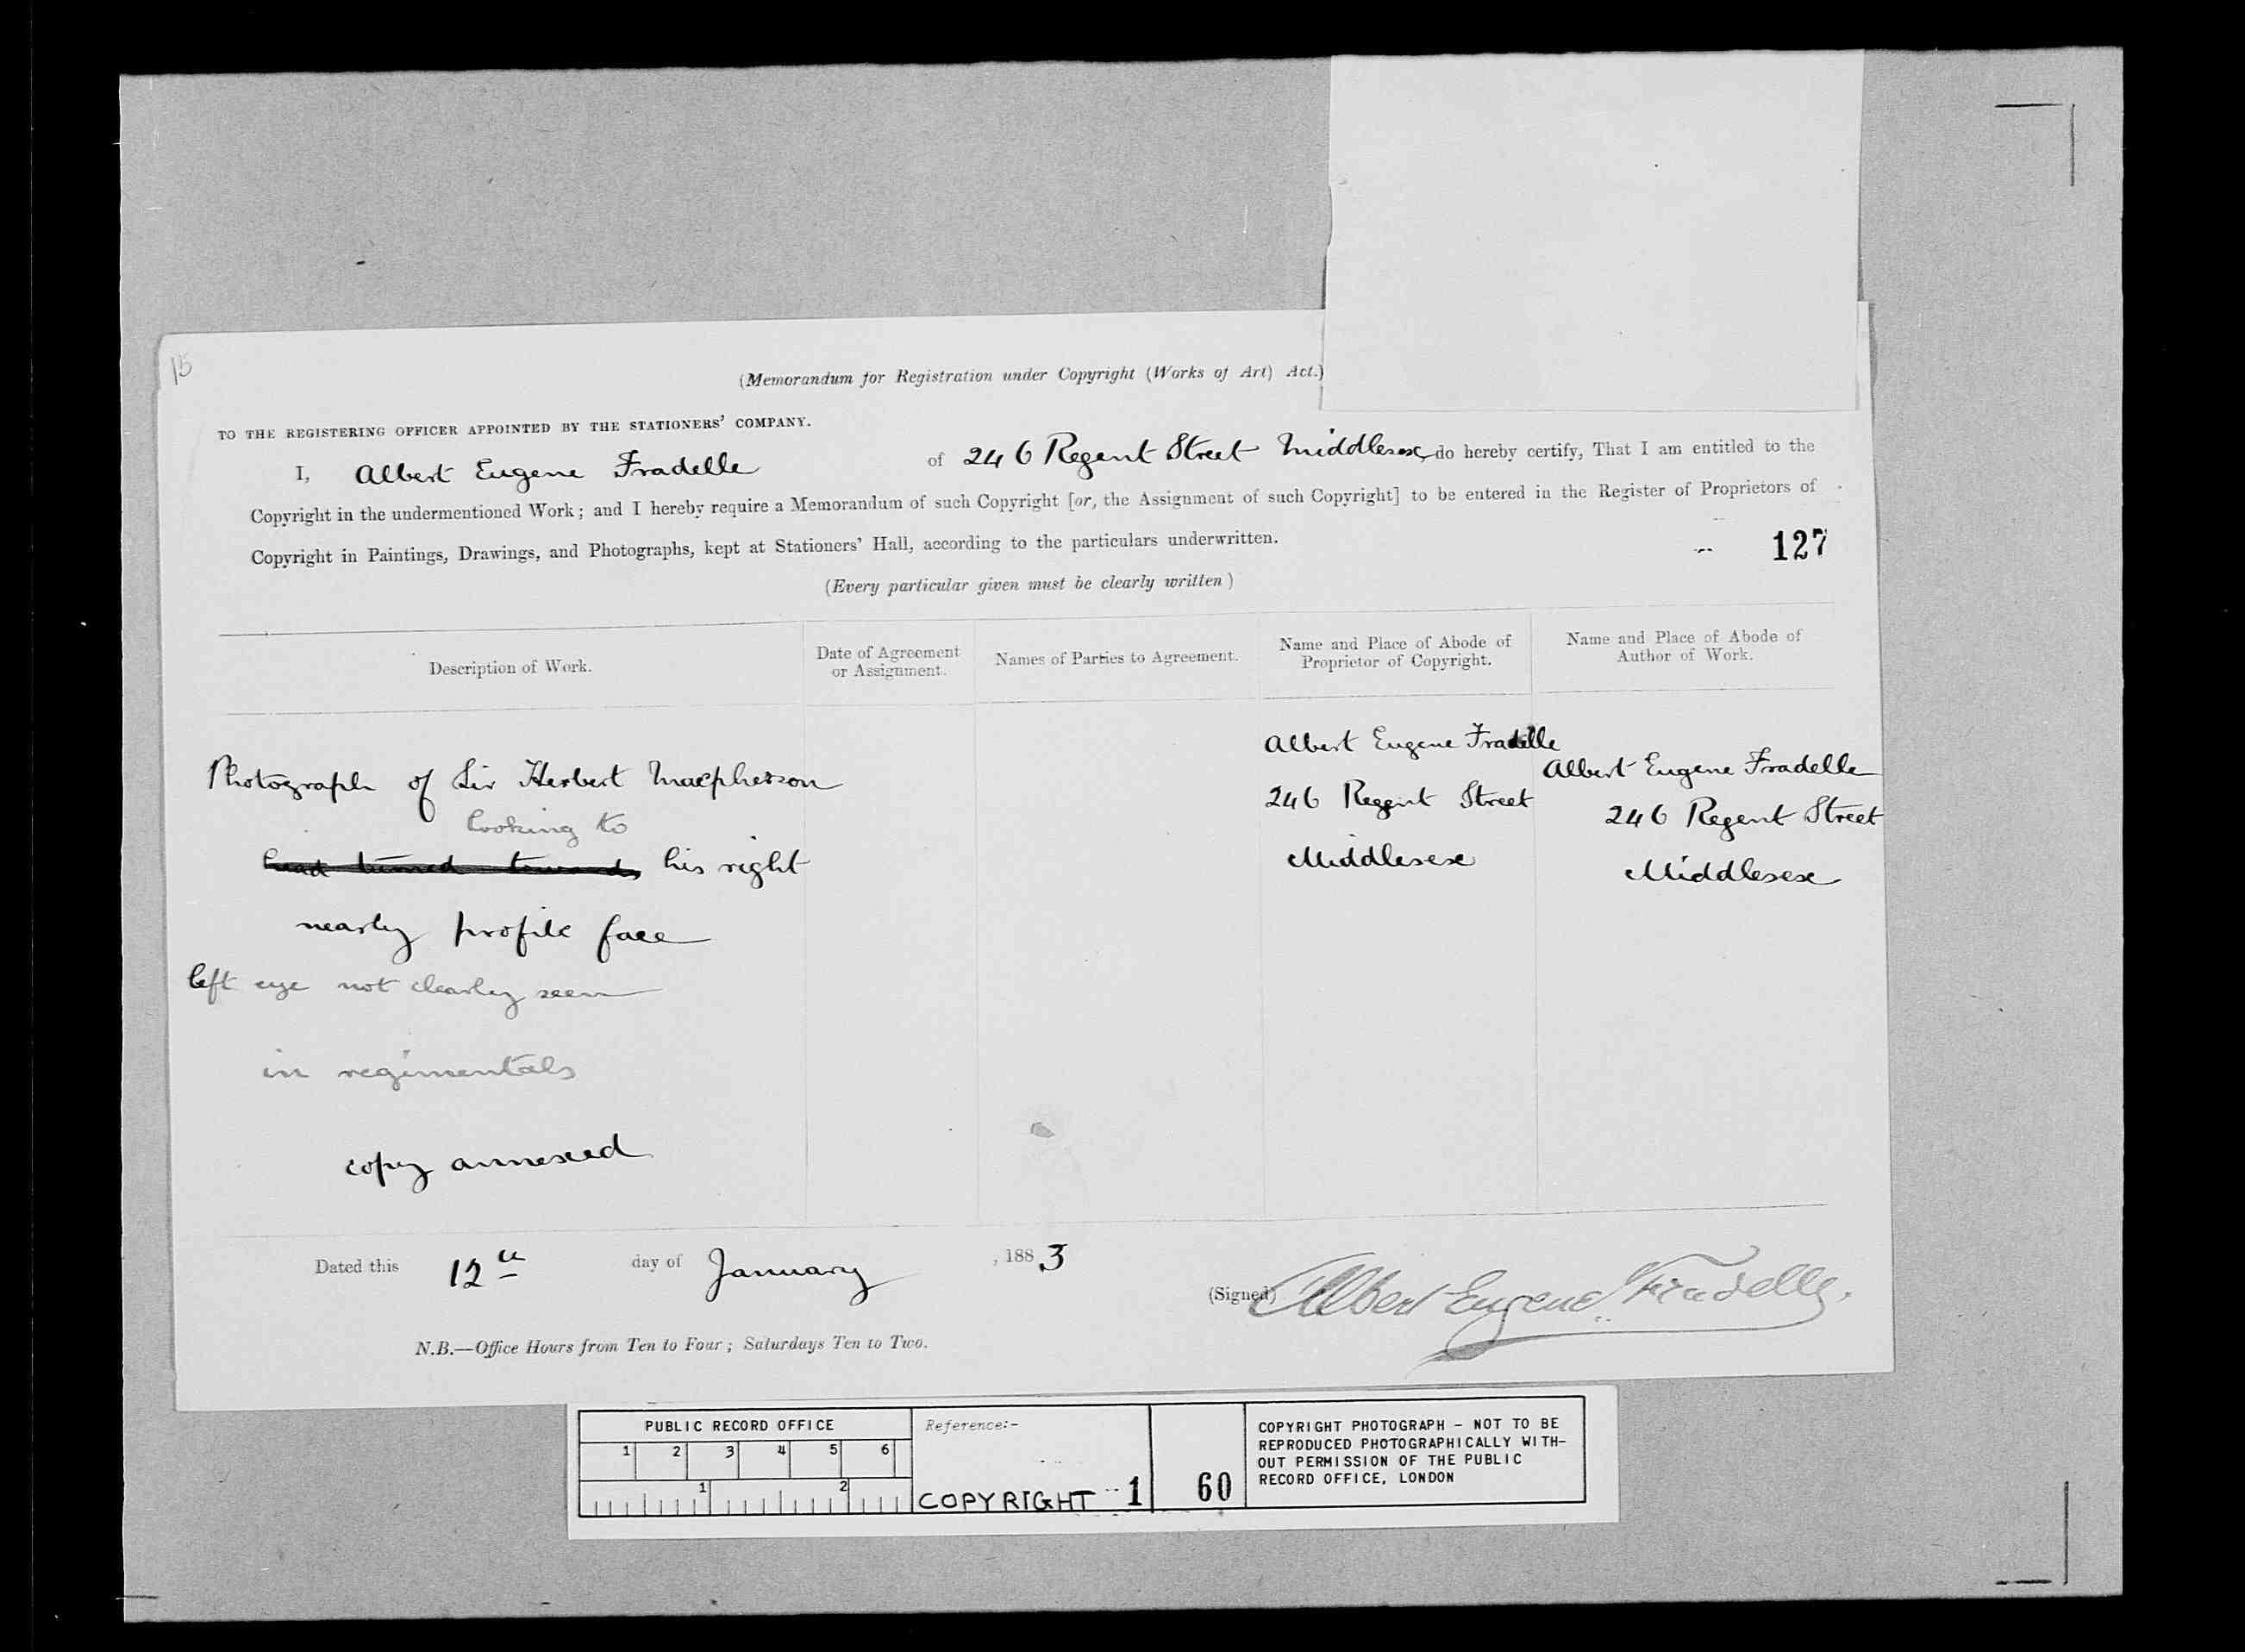 15
(Memorandum for Registration under Copyright (Works of Art) Act.)
TO THE REGISTERING OFFICER APPOINTED BY THE STATIONERS' COMPANY.
I, Albert Eugene Fradelle of 246 Regent Street Middlesex do hereby certify, That I am entitled to the
Copyright in the undermentioned Work; and I hereby require a Memorandum of such Copyright [or, the Assignment of such Copyright] to be entered in the Register of Proprietors of
Copyright in Paintings, Drawings, and Photographs, kept at Stationers' Hall, according to the particulars underwritten.
127
(Every particular given must be clearly written)
Description of Work.
Date of Agreement
or Assignment.
Names of Parties to Agreement.
Name and Place of Abode of
Proprietor of Copyright.
Name and Place of Abode of
Author of Work.
Photograph of Sir Herbert Macpherson
looking to
head turned towards his right
nearly profile face
left eye not clearly seen
in regimentals
copy annexed
Albert Eugene Fradelle
246 Regent Street
Middlesex
Albert Eugene Fradelle
246 Regent Street
Middlesex
Dated this 12th day of January, 1883
(Signed) Albert Eugene Fradelle.
N.B.—Office Hours from Ten to Four; Saturdays Ten to Two.
PUBLIC RECORD OFFICE
1 2 3 4 5 6
1 2
Reference:-
COPYRIGHT 1
60
COPYRIGHT PHOTOGRAPH - NOT TO BE
REPRODUCED PHOTOGRAPHICALLY WITH-
OUT PERMISSION OF THE PUBLIC
RECORD OFFICE, LONDON